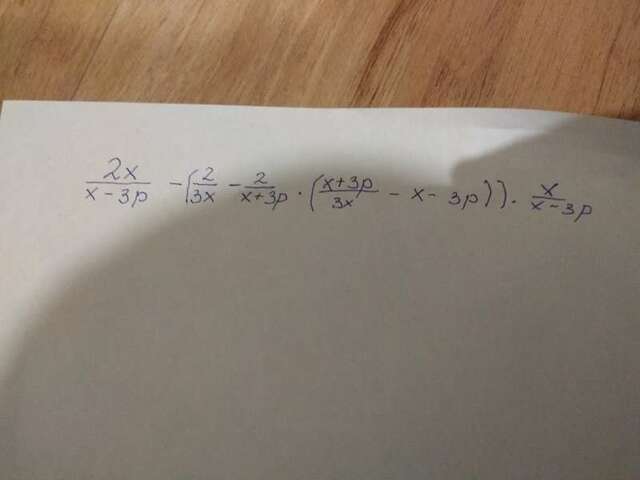 2x/(x-3p) - (2/3x - 2/(x+3p) · ((x+3p)/3x - x - 3p)) · x/(x-3p)